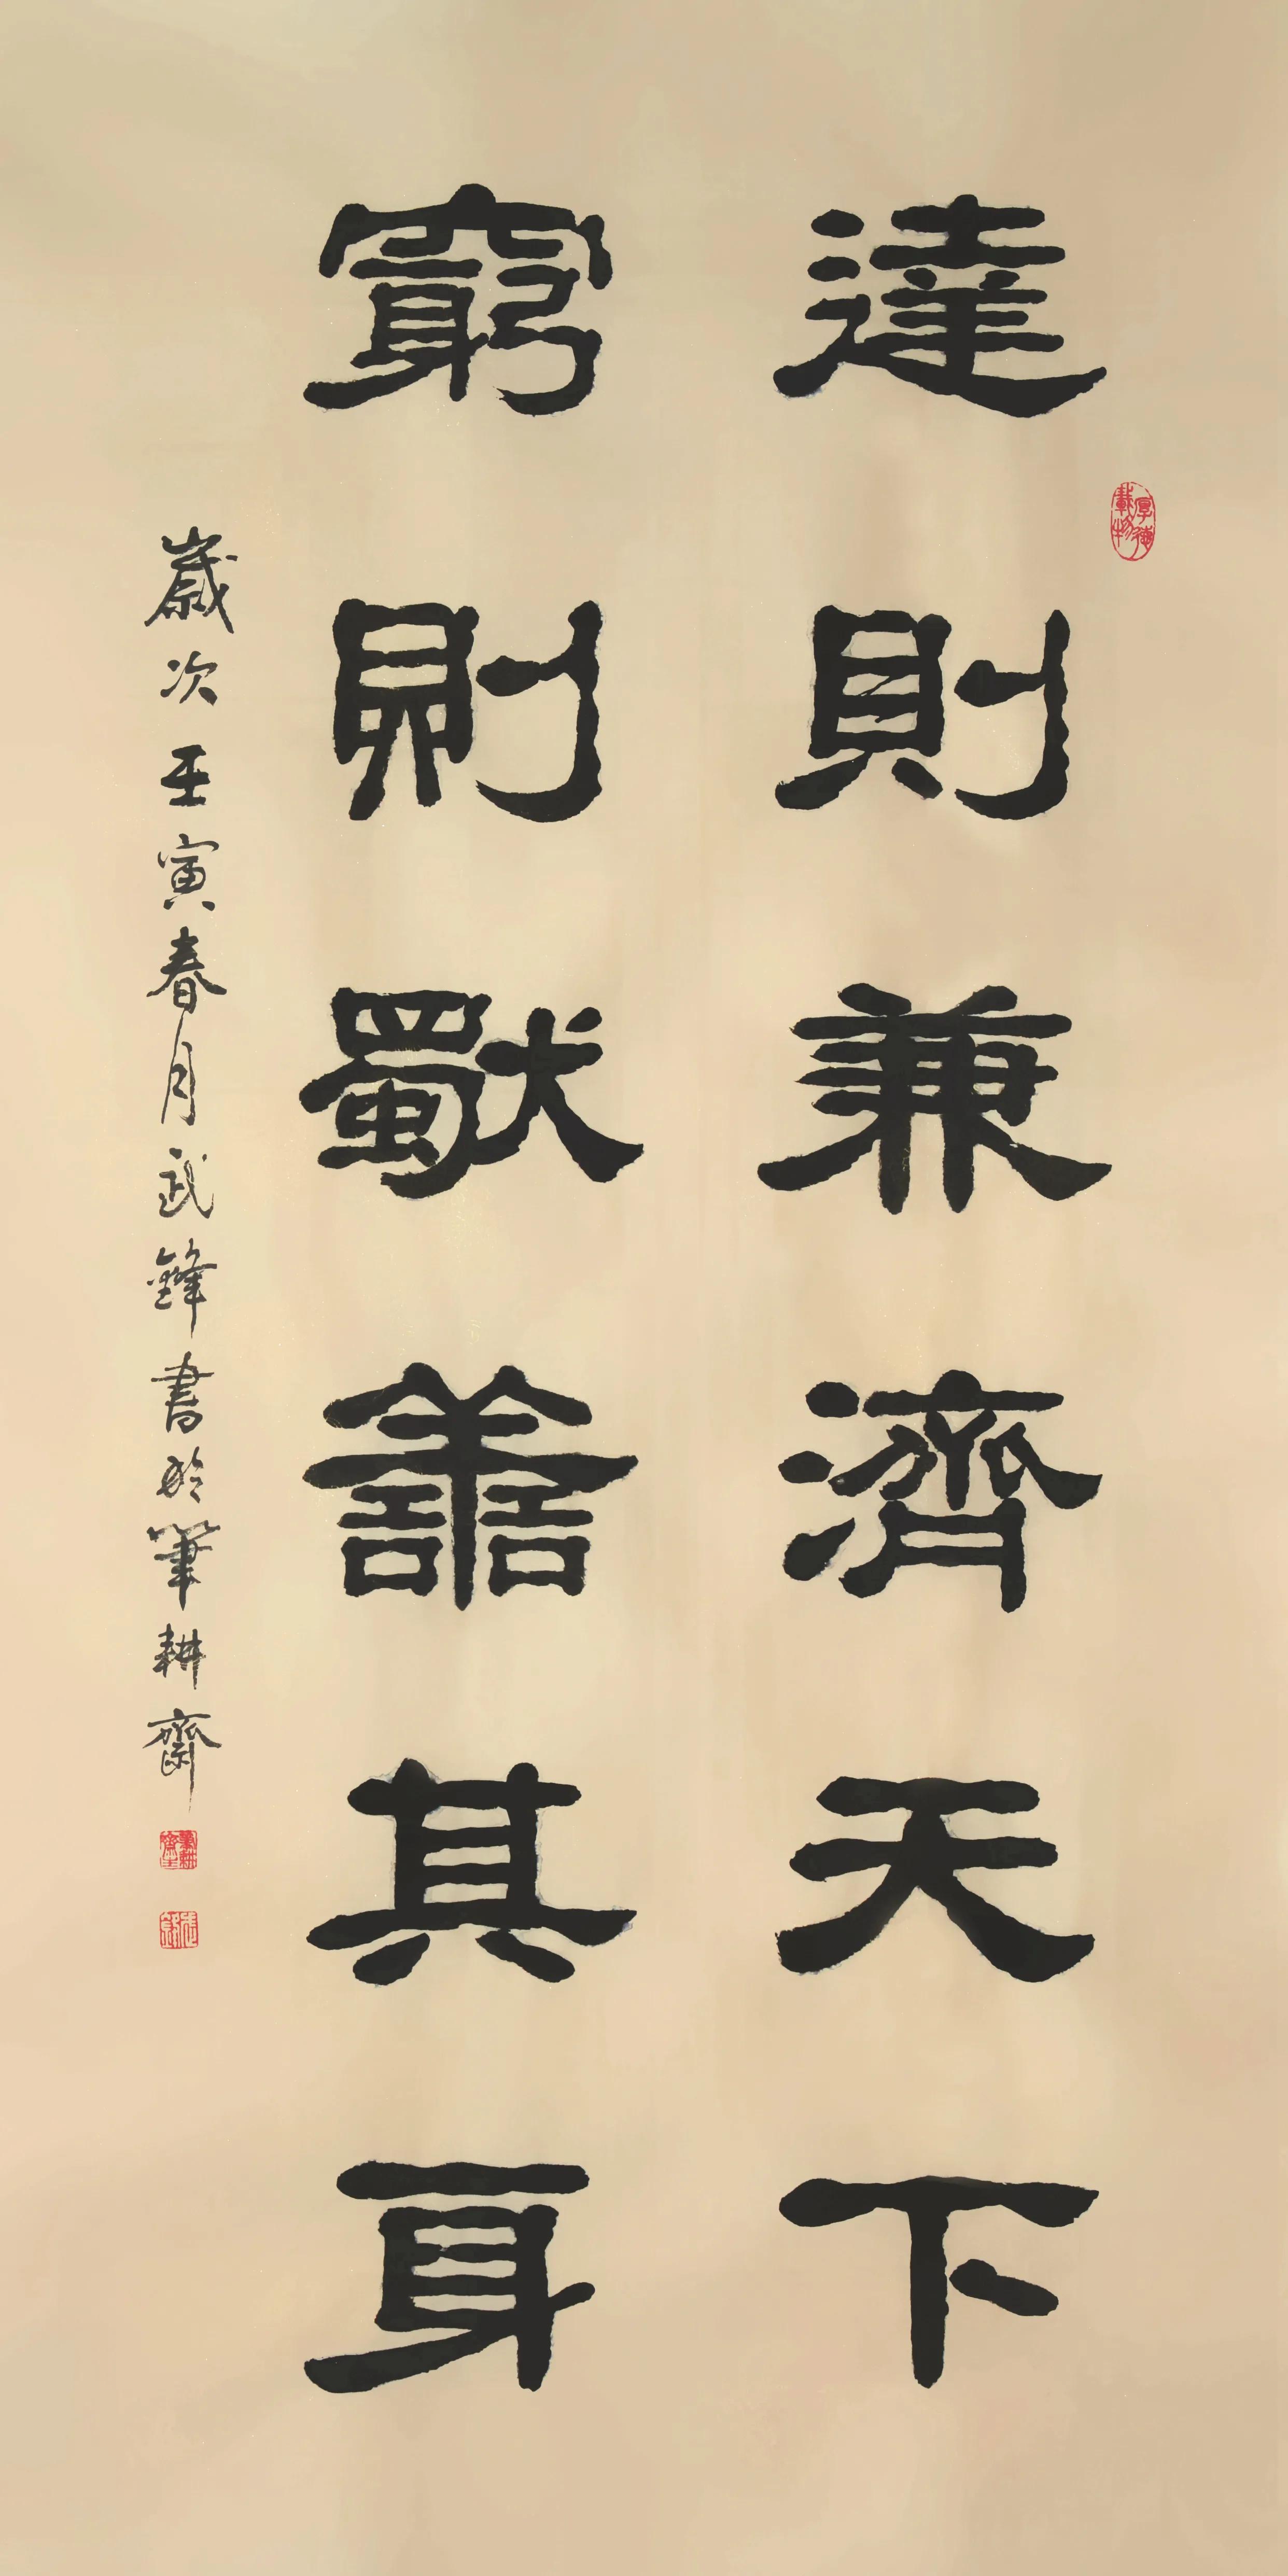 達則兼濟天下
窮則獨善其身
歲次壬寅春月武鋒書於筆耕齋
厚德載物